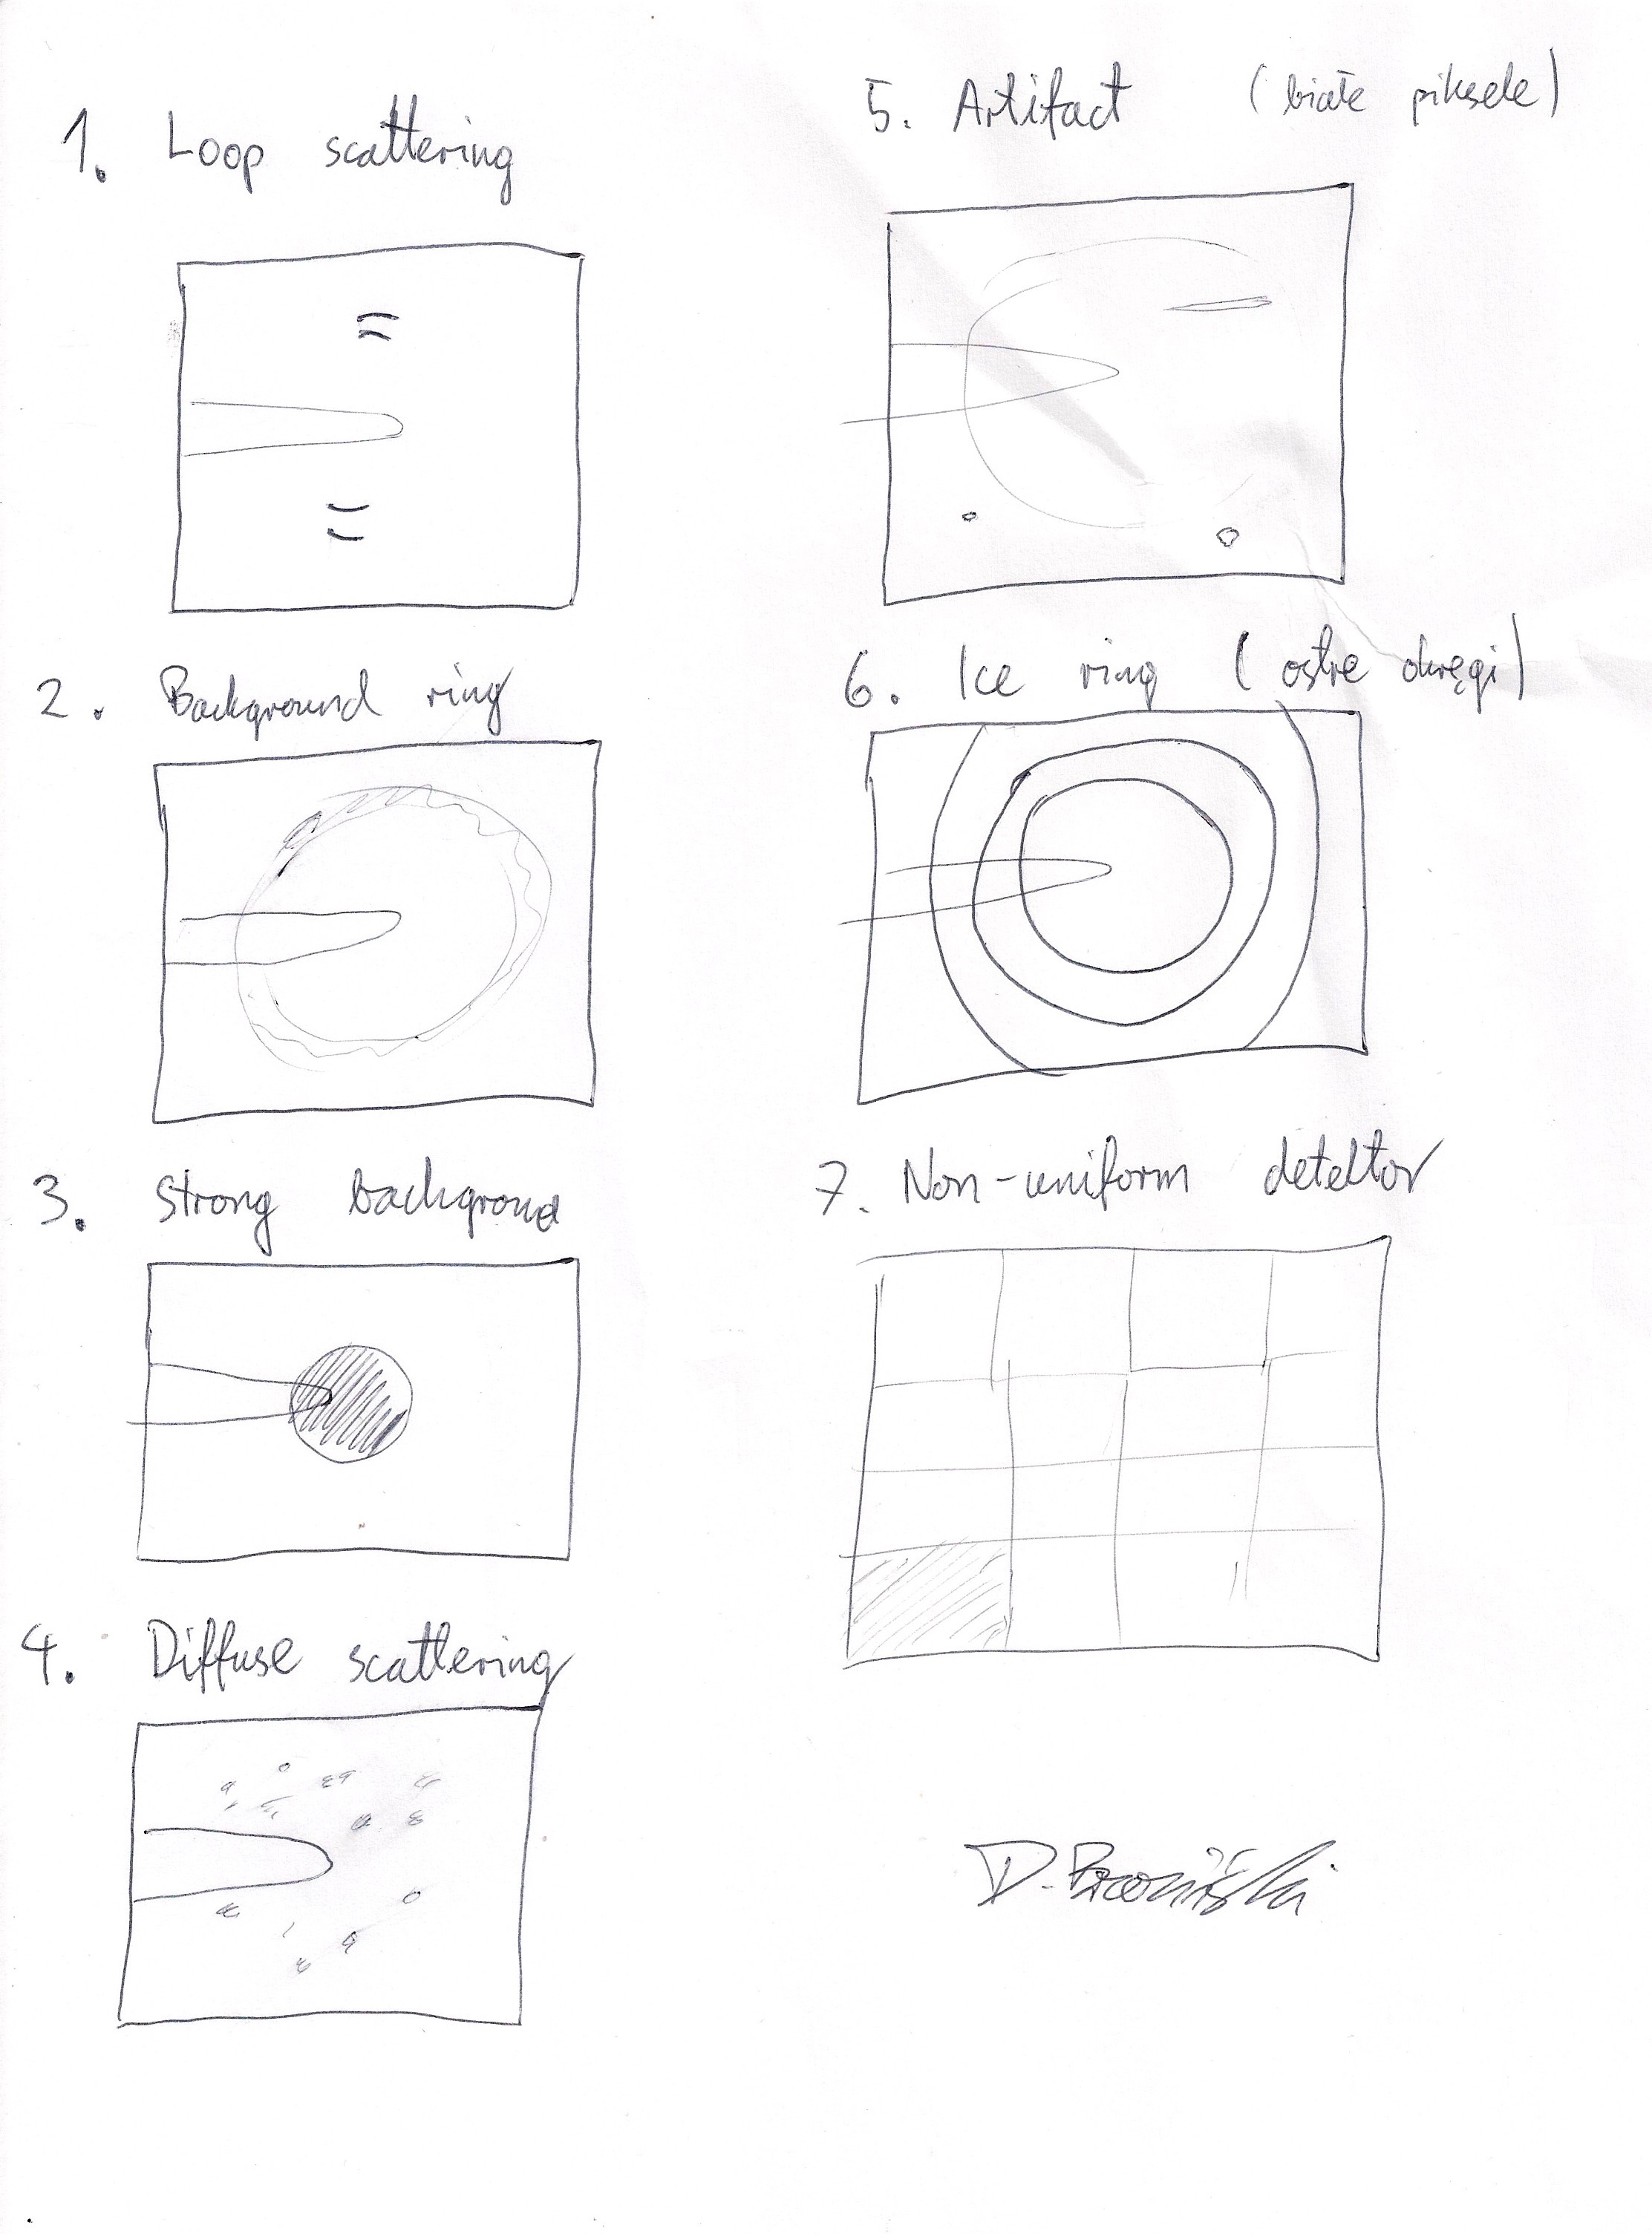 1. Loop scattering
2. Background ring
3. Strong background
4. Diffuse scattering
5. Artifact (białe piksele)
6. Ice ring (ostre okręgi)
7. Non-uniform detektor
D.